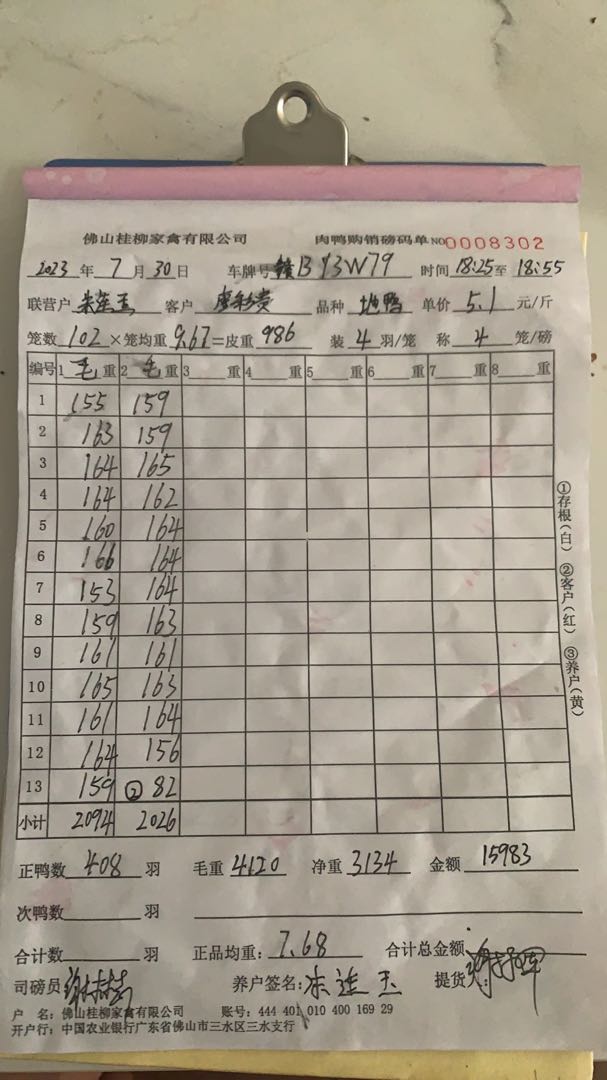 佛山桂柳家禽有限公司 肉鸭购销磅码单 NO 0008302
2023 年 7 月 30 日 车牌号 赣B Y3W79 时间 18:25 至 18:55
联营户 客户 品种 地鸭 单价 5.1 元/斤
笼数 102 ×笼均重 9.67 =皮重 986 装 4 羽/笼 称 4 笼/磅
编号 1 毛 重 2 毛 重 3 重 4 重 5 重 6 重 7 重 8 重
1 155 159
2 163 159
3 164 165
4 164 162
5 160 164
6 166 164
7 153 164
8 159 163
9 161 161
10 165 163
11 161 164
12 164 156
13 159 ② 82
小计 2094 2026
①存根(白) ②客户(红) ③养户(黄)
正鸭数 408 羽 毛重 4120 净重 3134 金额 15983
次鸭数 羽
合计数 羽 正品均重: 7.68 合计总金额
司磅员 养户签名: 朱连玉 提货人:
户 名: 佛山桂柳家禽有限公司 账号: 444 401 010 400 169 29
开户行: 中国农业银行广东省佛山市三水区三水支行